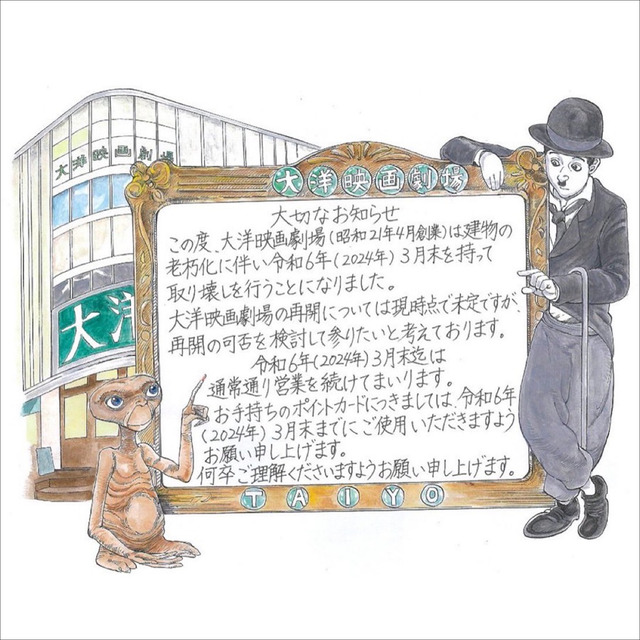 大洋映画劇場
大洋映画劇場
大切なお知らせ
この度、大洋映画劇場(昭和21年4月創業)は建物の
老朽化に伴い令和6年(2024年)3月末を持って
取り壊しを行うことになりました。
大洋映画劇場の再開については現時点で未定ですが、
再開の可否を検討して参りたいと考えております。
令和6年(2024年)3月末迄は
通常通り営業を続けてまいります。
お手持ちのポイントカードにつきましては、令和6年
(2024年)3月末までにご使用いただきますよう
お願い申し上げます。
何卒ご理解くださいますようお願い申し上げます。
大洋
TAIYO